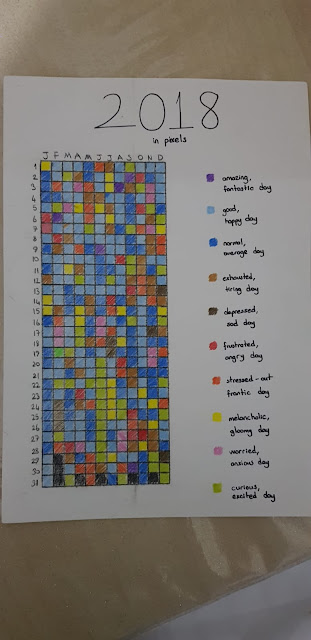 2018
in pixels
J F M A M J J A S O N D
1
2
3
4
5
6
7
8
9
10
11
12
13
14
15
16
17
18
19
20
21
22
23
24
25
26
27
28
29
30
31
amazing,
fantastic day
good,
happy day
normal,
average day
exhausted,
tiring day
depressed,
sad day
frustrated,
angry day
stressed-out
frantic day
melancholic,
gloomy day
worried,
anxious day
curious,
excited day